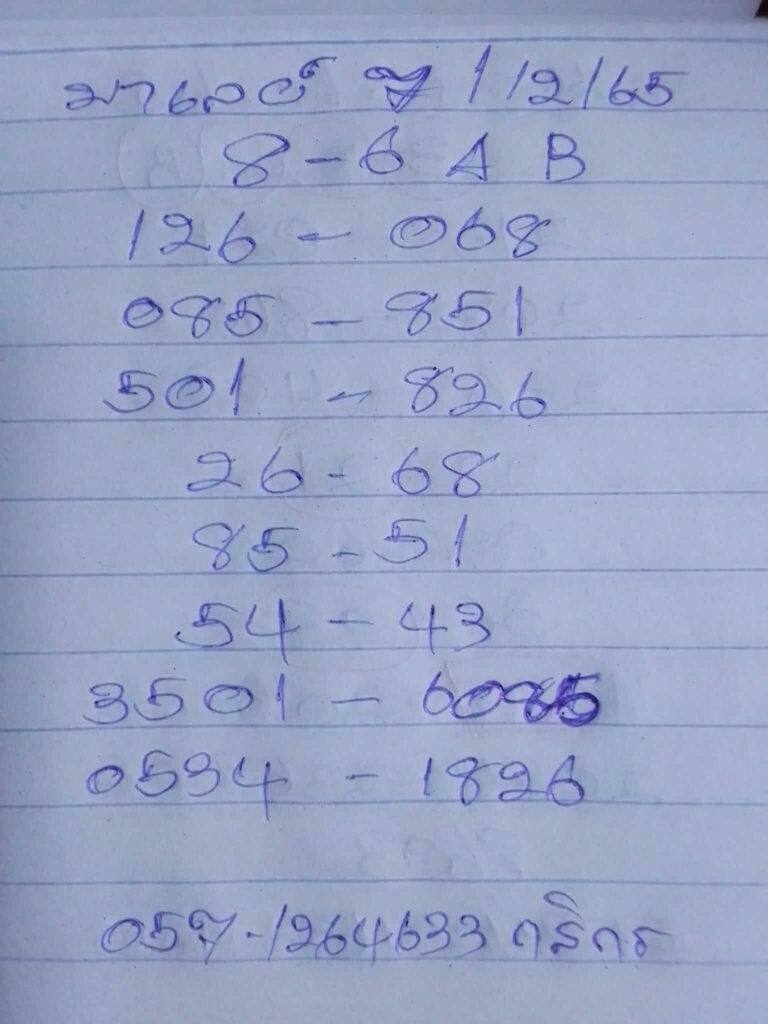 มาเลย์ 7 1/2/65
8-6 A B
126 - 068
085 - 851
501 - 826
26 - 68
85 - 51
54 - 43
3501 - 6085
0534 - 1826
057-1264633 กสิกร